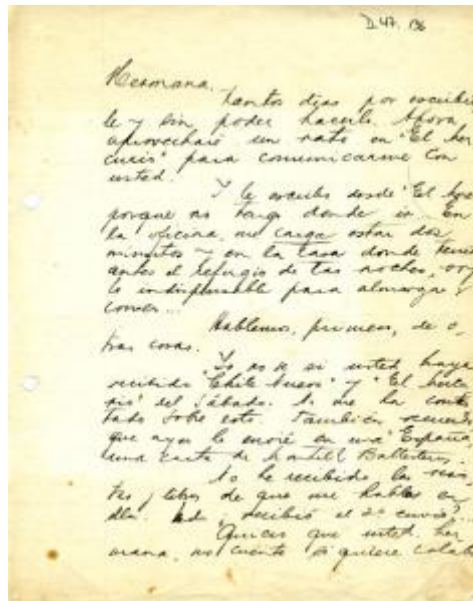 D. 47. 136
Hermana.
Tantos días por escribir
le y sin poder hacerlo. Ahora
aprovecharé un rato en "El Mer
curio" para comunicarme con
usted.
Y le escribo desde "El Mer
porque no tengo donde ir. En
la oficina, me carga estar dos
minutos y en la casa donde tenía
antes el refugio de las noches, voy
lo indispensable para almorzar y
comer...
Hablemos, primero, de o
tras cosas.
Yo no sé si usted haya
recibido "Chile Nuevo" y "El Mercu
rio" del sábado. No me ha contes
tado sobre esto. También,
que ayer le envié en una "España"
una carta de Ballesteros.
No he recibido las
y libros de que me habla en
ella. Ud. ¿recibió el 2º envío?
Quiero que usted, her
mana, me cuente si quiere colab